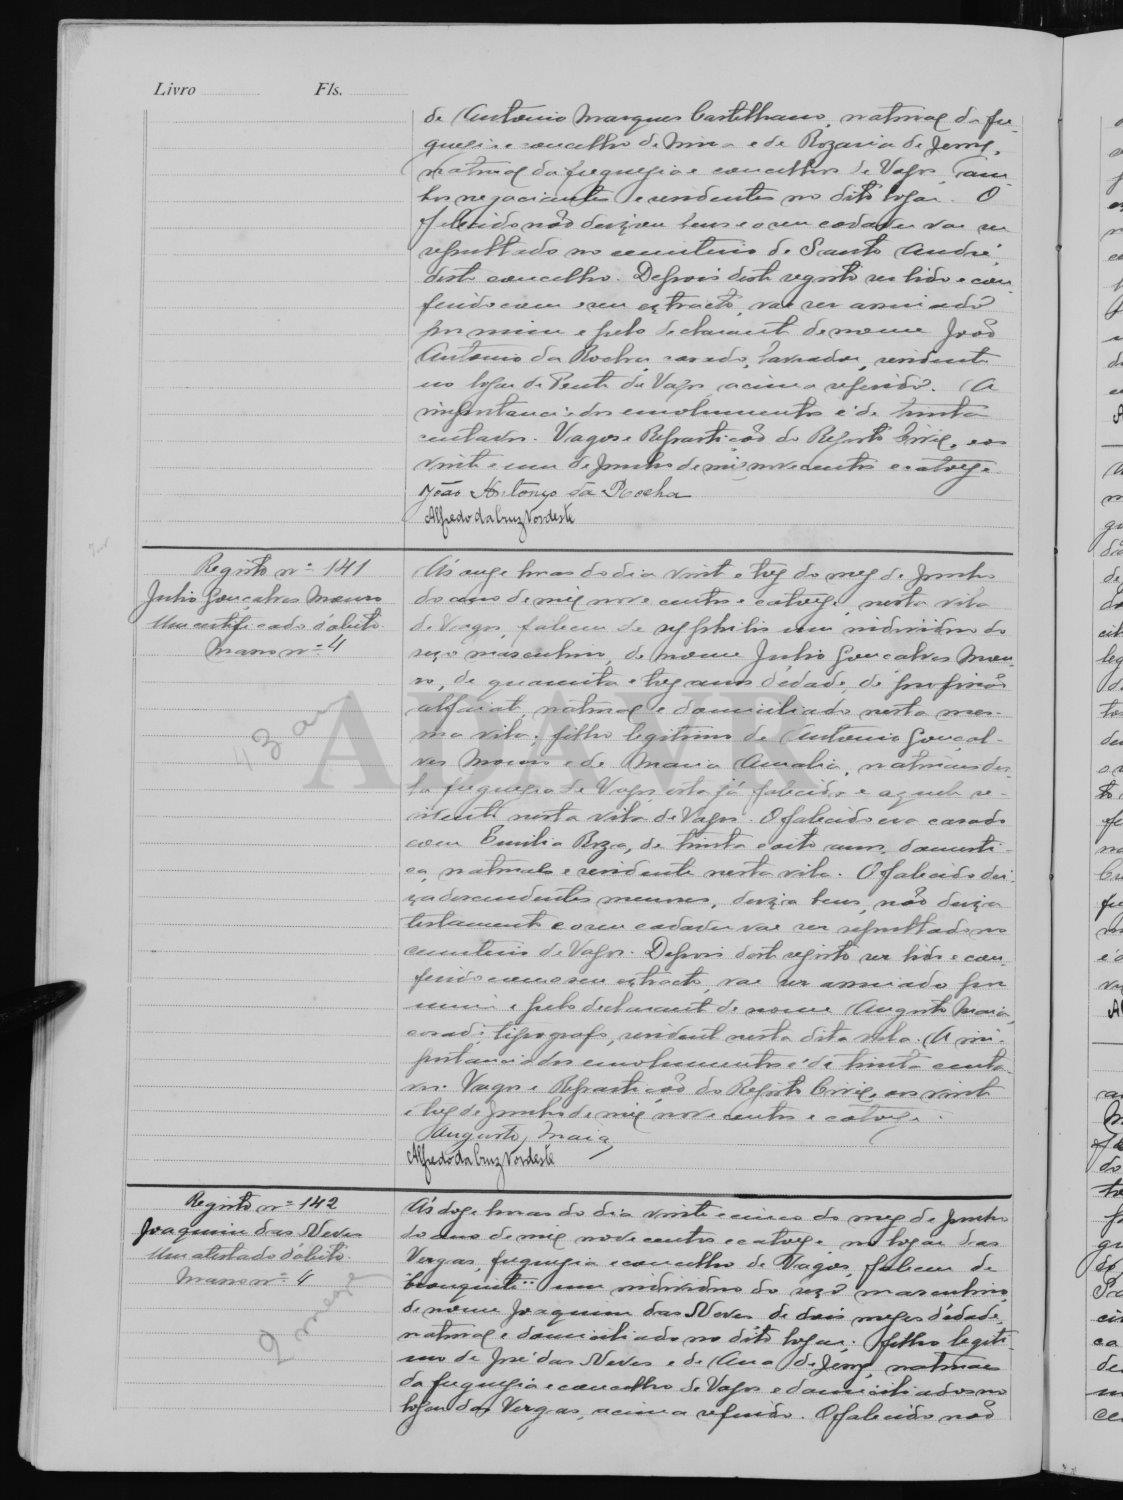 Livro Fls.
de Antonio Marques Castelhano, natural da fre-
guesia e concelho de Mira e de Rozaria de Jesus,
natural da freguesia e concelho de Vagos, am-
bos negociantes e residentes no dito logar. O
falecido não deixou bens e o seu cadaver vae ser
sepultado no cemiterio de Santo André,
deste concelho. Depois deste registo ser lido e con-
ferido com o seu extracto, vae ser assinado
por mim e pelo declarante de nome João
Antonio da Rocha, casado, lavrador, residente
no logar de Ponte de Vagos, acima referido. A
importancia dos emolumentos é de trinta
centavos. Vagos e Repartição do Registo Civil, aos
vinte e um de Junho de mil novecentos e catorze.
João Antonio da Rocha
Alfredo da Cruz Nordeste
Registo nº 141
Julio Gonçalves Mouro
Um certificado d'obito
Masso nº 4
43 an
Ás onze horas do dia vinte e tres do mez de Junho
do ano de mil nove centos e catorze, nesta vila
de Vagos, faleceu de syphilis um individuo do
sexo masculino, de nome Julio Gonçalves Mou-
ro, de quarenta e tres anos d'edade, de profissão
alfaiate, natural e domiciliado nesta mes-
ma vila; filho legitimo de Antonio Gonçal-
ves Mouro e de Maria Amalia, naturaes des-
ta freguesia de Vagos, esta já falecida e aquele re-
sidente nesta vila de Vagos. O falecido era casado
com Emilia Roza, de trinta e oito anos, domesti-
ca, natural e residente nesta vila. O falecido dei-
xa descendentes menores, deixa bens, não deixa
testamento e o seu cadaver vae ser sepultado no
cemiterio de Vagos. Depois deste registo ser lido e con-
ferido com o seu extracto, vae ser assinado por
mim e pelo declarante de nome Augusto Maia,
casado, tipografo, residente nesta dita vila. A im-
portancia dos emolumentos é de trinta centa-
vos. Vagos e Repartição do Registo Civil, aos vinte
e tres de Junho de mil nove centos e catorze.
Augusto Maia
Alfredo da Cruz Nordeste
ADAVR
Registo nº 142
Joaquim das Neves
Um atestado d'obito
Masso nº 4
2 mezes
Ás doze horas do dia vinte e cinco do mez de Junho
do ano de mil nove centos e catorze, no logar das
Vergas, freguesia e concelho de Vagos, faleceu de
"bronquite" um individuo do sexo masculino,
de nome Joaquim das Neves de dois mezes d'edade,
natural e domiciliado no dito logar; filho legiti-
mo de José das Neves e de Ana de Jesus, naturaes
da freguesia e concelho de Vagos e domiciliados no
logar das Vergas, acima referido. O falecido não